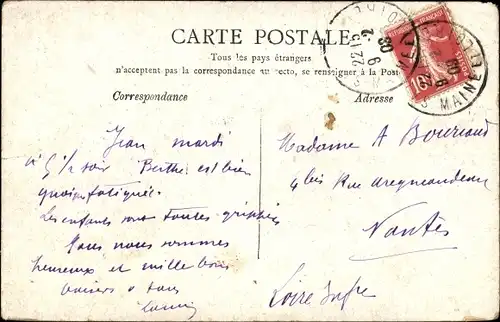 CARTE POSTALE
Tous les pays étrangers
n'acceptent pas la correspondance au recto, se renseigner à la Poste
Correspondance
Adresse
RÉPUBLIQUE FRANÇAISE
10
MAINE
22 15
Jean mardi
à 5h soir Berthe est bien
quoique fatiguée.
Les enfants sont toutes grippées
Nous nous sommes
heureux et mille bons
baisers à tous
Madame A Bouriaud
4 bis Rue
Nantes
Loire Infre